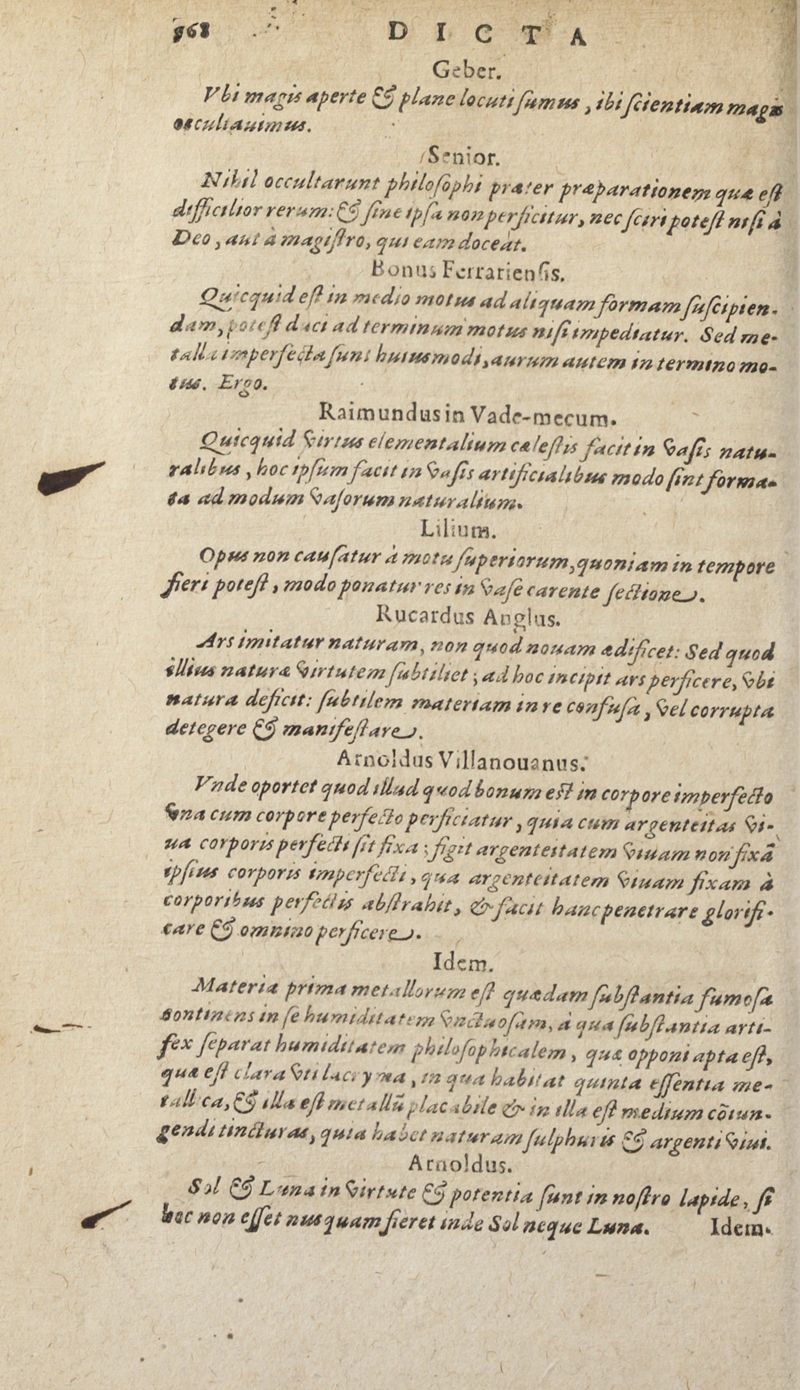 968 DICTA
Geber.
Vbi magis aperte & plane locuti ſumus, ibi ſcientiam magis
occultauimus.
Senior.
Nihil occultarunt philoſophi præter præparationem quæ eſt
difficilior rerum: & ſine ipſa non perficitur, nec ſciri poteſt niſi à
Deo, aut à magiſtro, qui eam doceat.
Bonus Ferrarienſis.
Quicquid eſt in medio motus ad aliquam formam ſuſcipien-
dam, poteſt duci ad terminum motus niſi impediatur. Sed me-
talla imperfecta ſunt huiusmodi, aurum autem in termino mo-
tus. Ergo.
Raimundus in Vade-mecum.
Quicquid virtus elementalium cæleſtis facit in vaſis natu-
ralibus, hoc ipſum facit in vaſis artificialibus modo ſint forma-
ta ad modum vaſorum naturalium.
Lilium.
Opus non cauſatur à motu ſuperiorum, quoniam in tempore
fieri poteſt, modo ponatur res in vaſe carente ſectione.
Rucardus Anglus.
Ars imitatur naturam, non quod nouam ædificet: Sed quod
illius naturæ virtutem ſubtiliet; ad hoc incipit ars perficere, vbi
natura deficit: ſubtilem materiam in re confuſa, vel corrupta
detegere & manifeſtare.
Arnoldus Villanouanus.
Vnde oportet quod illud quod bonum eſt in corpore imperfecto
vna cum corpore perfecto perficiatur, quia cum argenteitas vi-
ua corporis perfecti ſit fixa: figit argenteitatem viuam non fixã
ipſius corporis imperfecti, qua argenteitatem viuam fixam à
corporibus perfectis abſtrahit, & facit hanc penetrare glorifi-
care & omnino perficere.
Idem.
Materia prima metallorum eſt quædam ſubſtantia fumoſa
continens in ſe humiditatem vnctuoſam, à qua ſubſtantia arti-
fex ſeparat humiditatem philoſophicalem, quæ opponi apta eſt,
quæ eſt clara vti lacryma, in qua habitat quinta eſſentia me-
tallica, & illa eſt metallũ placabile & in illa eſt medium cõiun-
gendi tincturas, quia habet naturam ſulphuris & argenti viui.
Arnoldus.
Sol & Luna in virtute & potentia ſunt in noſtro lapide, ſi
hoc non eſſet nusquam fieret inde Sol neque Luna. Idem